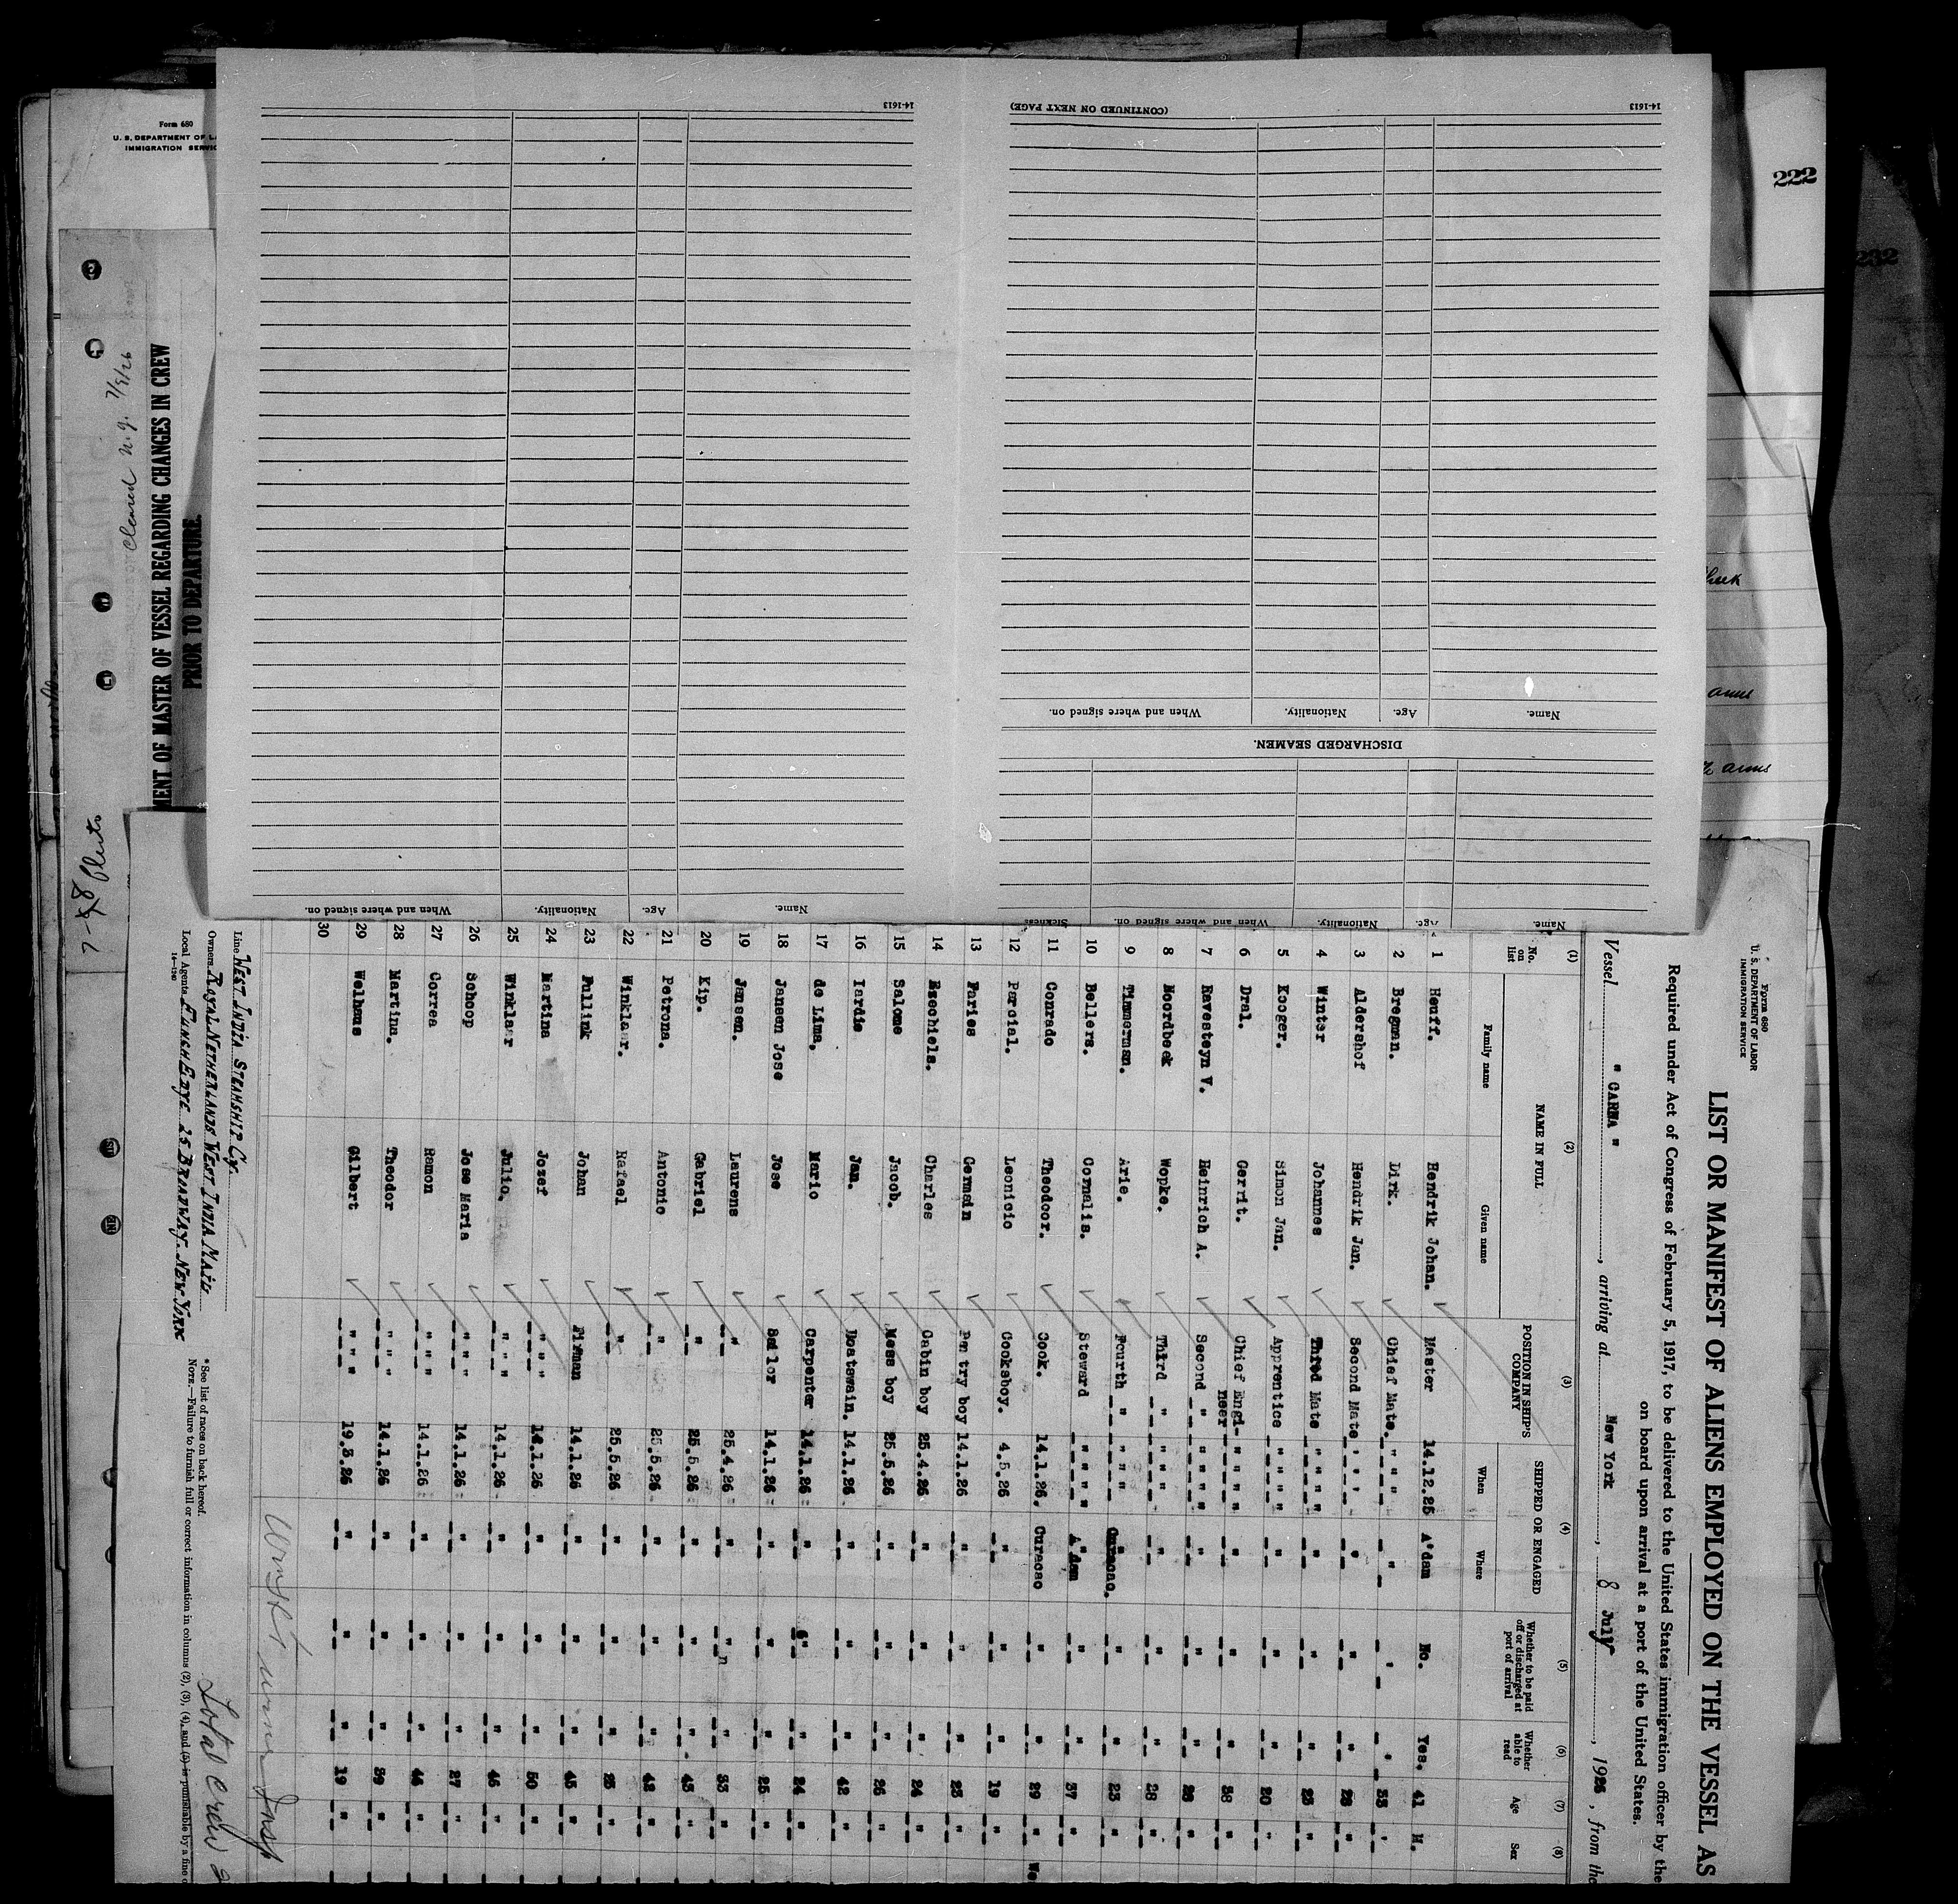 222
232
Form 680
U. S. DEPARTMENT OF LA
IMMIGRATION SERVIC
Cleared N.Y. 7/9/26
MENT OF MASTER OF VESSEL REGARDING CHANGES IN CREW
PRIOR TO DEPARTURE.
14-1613
(CONTINUED ON NEXT PAGE)
14-1613
Name. Age. Nationality. When and where signed on.
DISCHARGED SEAMEN.
Name. Age. Nationality. When and where signed on. Sickness.
Name. Age. Nationality. When and where signed on.
Form 680
U. S. DEPARTMENT OF LABOR
IMMIGRATION SERVICE
LIST OR MANIFEST OF ALIENS EMPLOYED ON THE VESSEL AS
Required under Act of Congress of February 5, 1917, to be delivered to the United States immigration officer by the
on board upon arrival at a port of the United States.
Vessel " CARNA " , arriving at New York , 8 July , 1926 , from the
(1) (2) (3) (4) (5) (6) (7) (8)
No. on list NAME IN FULL POSITION IN SHIP'S COMPANY SHIPPED OR ENGAGED Whether to be paid off or discharged at port of arrival Whether able to read Age Sex
Family name Given name When Where
1 Heuff. Hendrik Johan. Master 14.12.25 A'dam No. Yes. 41 M.
2 Bregman. Dirk. Chief Mate. " " " " " " 33 "
3 Aldershof Hendrik Jan. Second Mate " " " " " " 26 "
4 Winter Johannes Third Mate " " " " " " 23 "
5 Kooger. Simon Jan. Apprentice " " " " " " 20 "
6 Dral. Gerrit. Chief Engineer " " " " " " 38 "
7 Ravesteyn V. Heinrich A. Second " " " " " " " 26 "
8 Noordbeek Wopke. Third " " " " " " " 28 "
9 Timmerman. Arie. Fourth " " " " " " 23 "
10 Bellers. Cornalis. Steward " " " A'dam " " 37 "
11 Conrado Theodoor. Cook. 14.1.26. Curacao " " 29 "
12 Parcial. Leonicio Cooksboy. 4.5.26 " " " 19 "
13 Faries Germain Pantry boy 14.1.26 " " " 23 "
14 Ezechiels. Charles Cabin boy 25.4.26 " " " 24 "
15 Salome Jacob. Mess boy 25.5.26 " " " 26 "
16 Iardie Jan. Boatswain. 14.1.26 " " " 42 "
17 de Lima. Mario Carpenter 14.1.26 " " " 24 "
18 Jansen Jose Jose Sailor 14.1.26 " " " 25 "
19 Jansen. Laurens " 25.4.26 " " " 33 "
20 Kip. Gabriel " 25.5.26 " " " 43 "
21 Petrona. Antonio " 25.5.26 " " " 42 "
22 Winklaar. Rafael " 25.5.26 " " " 23 "
23 Fullink Johan Firman 14.1.26 " " " 45 "
24 Martina Jozef " " " 14.1.26 " " " 50 "
25 Winklaar Julio. " " " 14.1.26 " " " 46 "
26 Schoop Jose Maria " " " 14.1.26 " " " 27 "
27 Correa Ramon " " " 14.1.26 " " " 46 "
28 Martina. Theodor " " " 14.1.26 " " " 39 "
29 Welhaus Gilbert " " " 19.3.26 " " " 19 "
30
Line WEST INDIA STEAMSHIP Cy.
Owners ROYAL NETHERLANDS WEST INDIA MAIL
Local Agents FUNCH EDYE 25 BROADWAY. NEW YORK
14-1240
*See list of races on back hereof.
NOTE.—Failure to furnish full or correct information in columns (2), (3), (4), and (5) is punishable by a fine o
Total crew 2